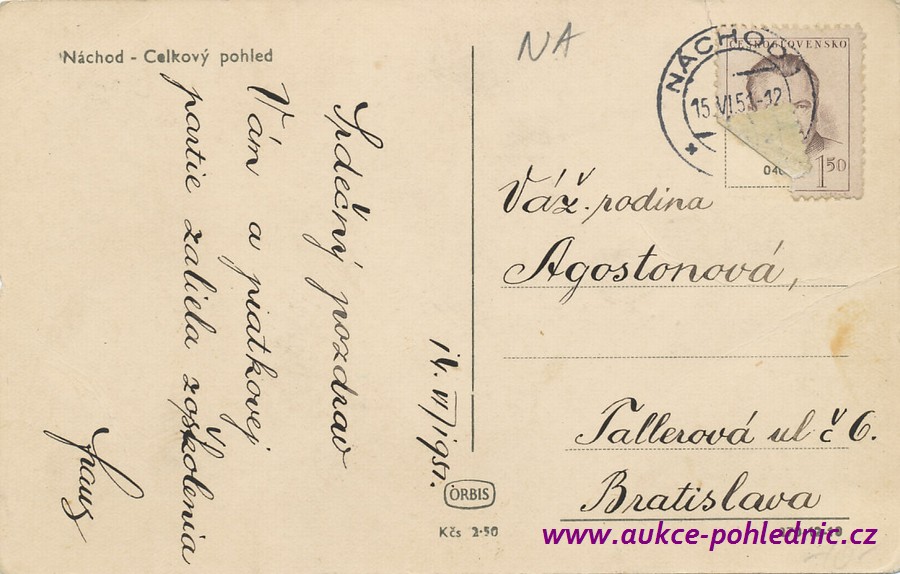 Náchod - Celkový pohled
NA
NÁCHOD
15.VI.51-12
ČESKOSLOVENSKO
1 50
Srdečný pozdrav
Vám a piatkovej
partie zaliela zo školenia
Franz
Váž. rodina
Agostonová,
Tallerová ul č 6.
Bratislava
VI/1951.
ORBIS
Kčs 2·50
www.aukce-pohlednic.cz